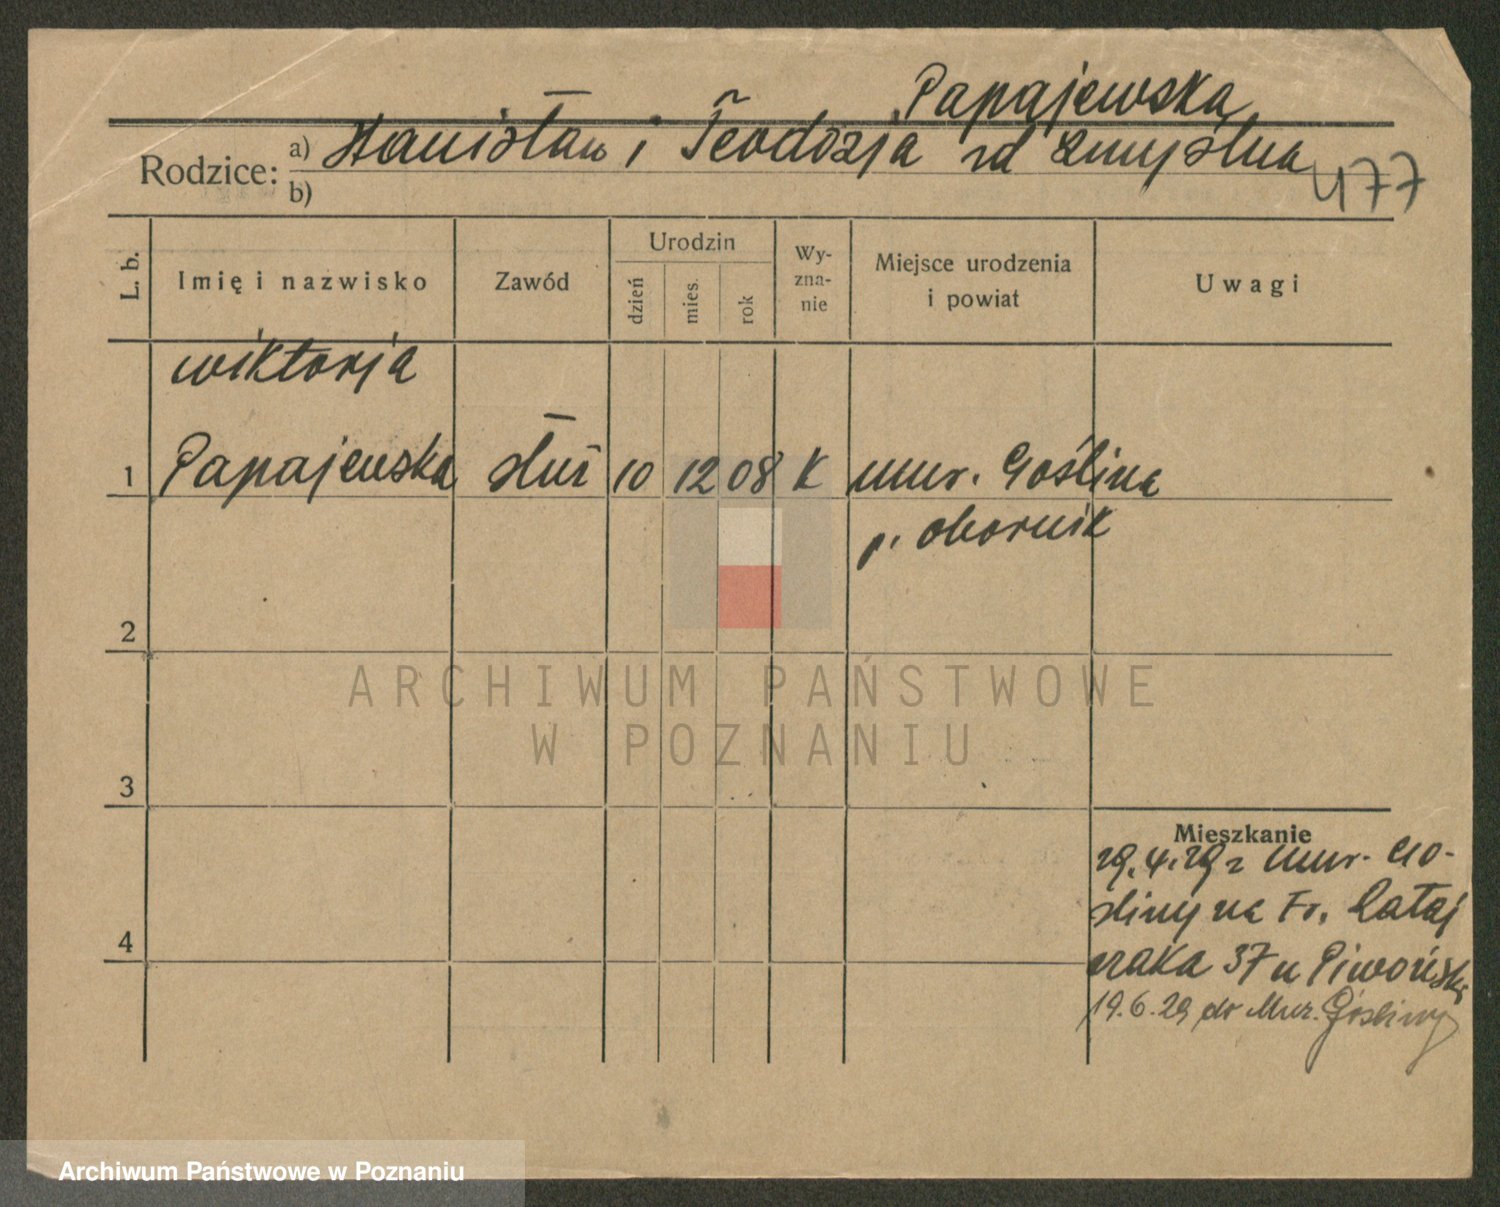 Papajewska
Rodzice: a) Stanisław i Teodozja zd Zmyślna
b)
477
L. b.
Imię i nazwisko
Zawód
Urodzin
dzień
mies.
rok
Wy-
zna-
nie
Miejsce urodzenia
i powiat
Uwagi
wiktorja
1 Papajewska służ 10 12 08 K mur. Goślina
p. obornik
2
3
4
Mieszkanie
29.4.29 z mur. Go-
śliny na Fr. Rataj
czaka 37 u Piwońsk
19.6.29 do Mur. Gośliny
ARCHIWUM PAŃSTWOWE
W POZNANIU
Archiwum Państwowe w Poznaniu